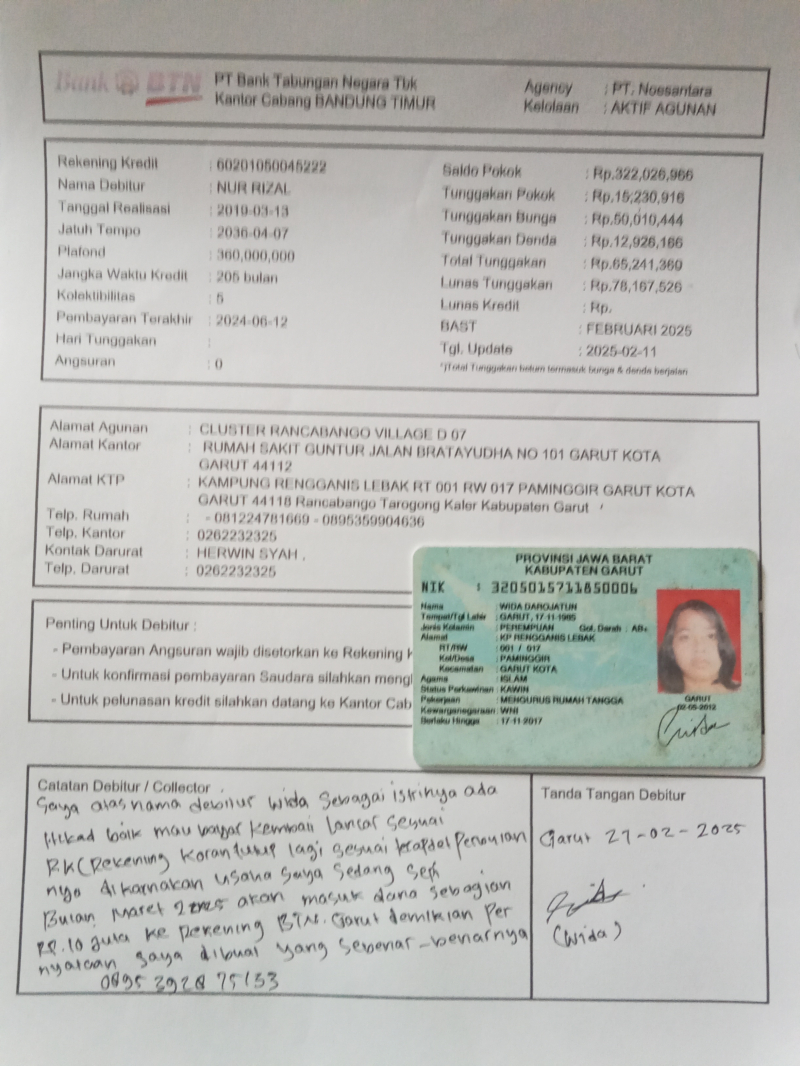 Bank BTN
PT Bank Tabungan Negara Tbk
Kantor Cabang BANDUNG TIMUR
Agency : PT. Noesantara
Kelolaan : AKTIF AGUNAN
Rekening Kredit : 60201050045222
Nama Debitur : NUR RIZAL
Tanggal Realisasi : 2019-03-13
Jatuh Tempo : 2036-04-07
Plafond : 360,000,000
Jangka Waktu Kredit : 205 bulan
Kolektibilitas : 5
Pembayaran Terakhir : 2024-06-12
Hari Tunggakan :
Angsuran : 0
Saldo Pokok : Rp.322,026,966
Tunggakan Pokok : Rp.15,230,916
Tunggakan Bunga : Rp.50,010,444
Tunggakan Denda : Rp.12,926,166
Total Tunggakan : Rp.65,241,360
Lunas Tunggakan : Rp.78,167,526
Lunas Kredit : Rp.
BAST : FEBRUARI 2025
Tgl. Update : 2025-02-11
*)Total Tunggakan belum termasuk bunga & denda berjalan
Alamat Agunan : CLUSTER RANCABANGO VILLAGE D 07
Alamat Kantor : RUMAH SAKIT GUNTUR JALAN BRATAYUDHA NO 101 GARUT KOTA
GARUT 44112
Alamat KTP : KAMPUNG RENGGANIS LEBAK RT 001 RW 017 PAMINGGIR GARUT KOTA
GARUT 44118 Rancabango Tarogong Kaler Kabupaten Garut
Telp. Rumah : - 081224781669 - 0895359904636
Telp. Kantor : 0262232325
Kontak Darurat : HERWIN SYAH .
Telp. Darurat : 0262232325
PROVINSI JAWA BARAT
KABUPATEN GARUT
NIK : 3205015711850006
Nama : WIDA DAROJATUN
Tempat/Tgl Lahir : GARUT, 17-11-1985
Jenis Kelamin : PEREMPUAN Gol. Darah : AB+
Alamat : KP RENGGANIS LEBAK
RT/RW : 001 / 017
Kel/Desa : PAMINGGIR
Kecamatan : GARUT KOTA
Agama : ISLAM
Status Perkawinan : KAWIN
Pekerjaan : MENGURUS RUMAH TANGGA
Kewarganegaraan : WNI
Berlaku Hingga : 17-11-2017
GARUT
02-05-2012
Penting Untuk Debitur :
- Pembayaran Angsuran wajib disetorkan ke Rekening K
- Untuk konfirmasi pembayaran Saudara silahkan mengh
- Untuk pelunasan kredit silahkan datang ke Kantor Cab
Catatan Debitur / Collector
Saya atas nama debitur wida sebagai istrinya ada
itikad baik mau bayar kembali lancar sesuai
RK (Rekening Koran tutup lagi sesuai
nya dikarnakan usaha saya sedang sepi
Bulan Maret 2025 akan masuk dana sebagian
Rp. 10 Juta ke Rekening BTN. Garut demikian Per
nyataan saya dibuat yang sebenar-benarnya
Tanda Tangan Debitur
Garut 27-02-2025
(Wida)